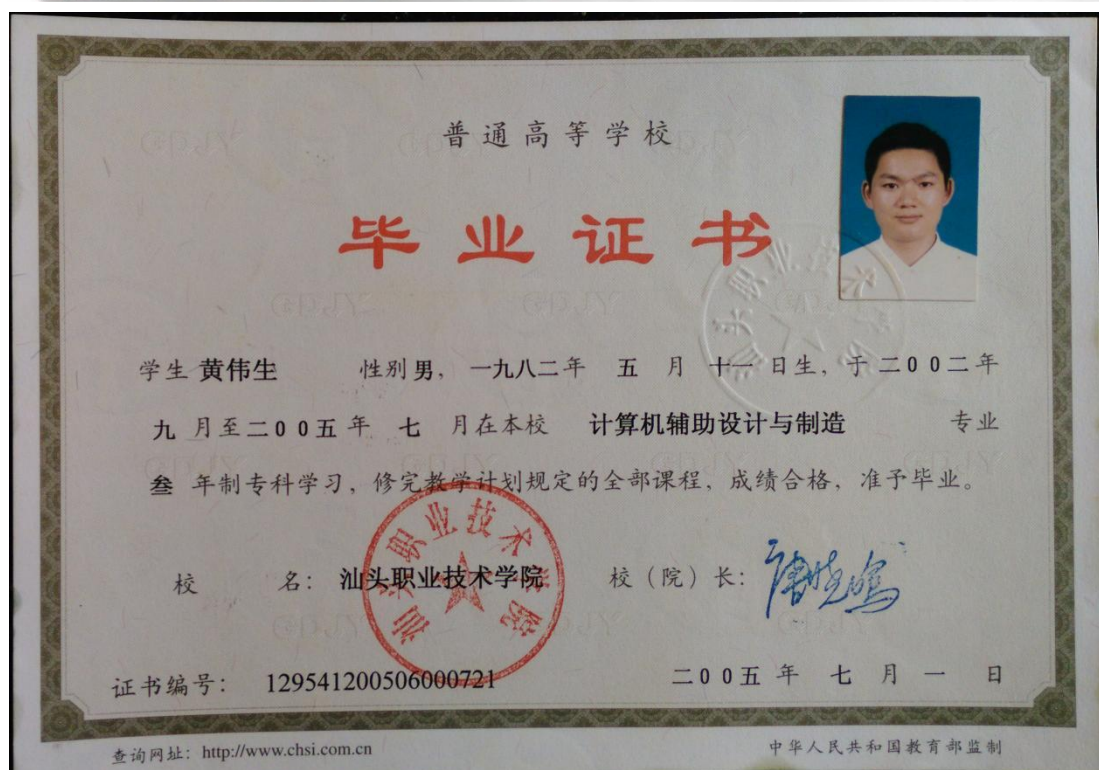 普通高等学校
毕业证书
学生 黄伟生 性别 男， 一九八二年 五 月 十一 日生，于 二００二年
九 月至二００五年 七 月在本校 计算机辅助设计与制造 专业
叁 年制专科学习，修完教学计划规定的全部课程，成绩合格，准予毕业。
校 名： 汕头职业技术学院 校（院）长： 唐晓鸣
汕头职业技术学院
汕头职业技术学院
证书编号： 129541200506000721 二００五 年 七 月 一 日
查询网址：http://www.chsi.com.cn 中华人民共和国教育部监制